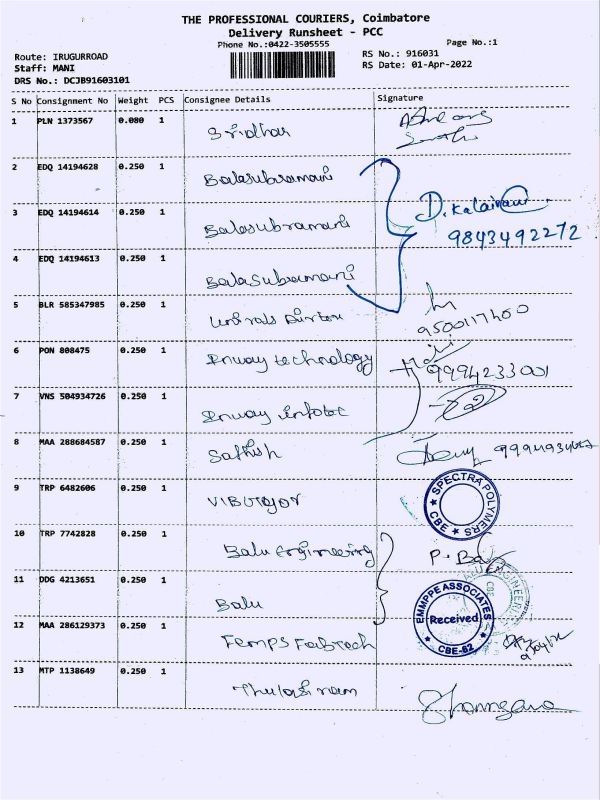 THE PROFESSIONAL COURIERS, Coimbatore
Delivery Runsheet - PCC
Phone No.:0422-3505555
Page No.:1
Route: IRUGURROAD
Staff: MANI
DRS No.: DCJB91603101
RS No.: 916031
RS Date: 01-Apr-2022
S No Consignment No Weight PCS Consignee Details Signature
1 PLN 1373567 0.080 1 Sridhar
2 EDQ 14194628 0.250 1 Balasubramani
3 EDQ 14194614 0.250 1 Balasubramani D. Kalaivani
9843492272
4 EDQ 14194613 0.250 1 Balasubramani
5 BLR 585347985 0.250 1
9500117400
6 PON 808475 0.250 1 Inway technology 9994233001
7 VNS 504934726 0.250 1 Inway infotec
8 MAA 288684587 0.250 1 Sathish
9 TRP 6482606 0.250 1 SPECTRA POLYMERS
CBE
10 TRP 7742828 0.250 1 Balu Engineering P. Balu
11 DDG 4213651 0.250 1 Balu
EMMPPE ASSOCIATES
Received
CBE-62
12 MAA 286129373 0.250 1 Temps Fabtech
13 MTP 1138649 0.250 1 Thulasi ram